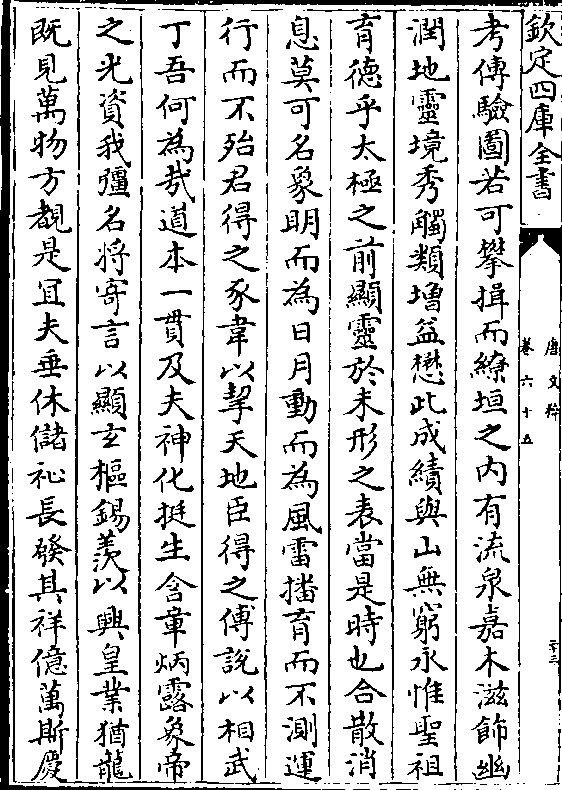 欽定四庫全書
唐文粹
卷六十五
二十三
考傳驗圖若可攀揖而繚垣之内有流泉嘉木滋飾幽
潤地靈境秀觸類增益懋此成績與山無窮永惟聖祖
育德乎太極之前顯靈於未形之表當是時也合散消
息莫可名象明而為日月動而為風雷播育而不測運
行而不殆君得之豕韋以挈天地臣得之傅說以相武
丁吾何為哉道本一貫及夫神化挺生含章炳露象帝
之光資我彊名將寄言以顯玄樞錫羨以興皇業猶龍
既見萬物方覩是宜夫垂休儲祉長發其祥億萬斯慶